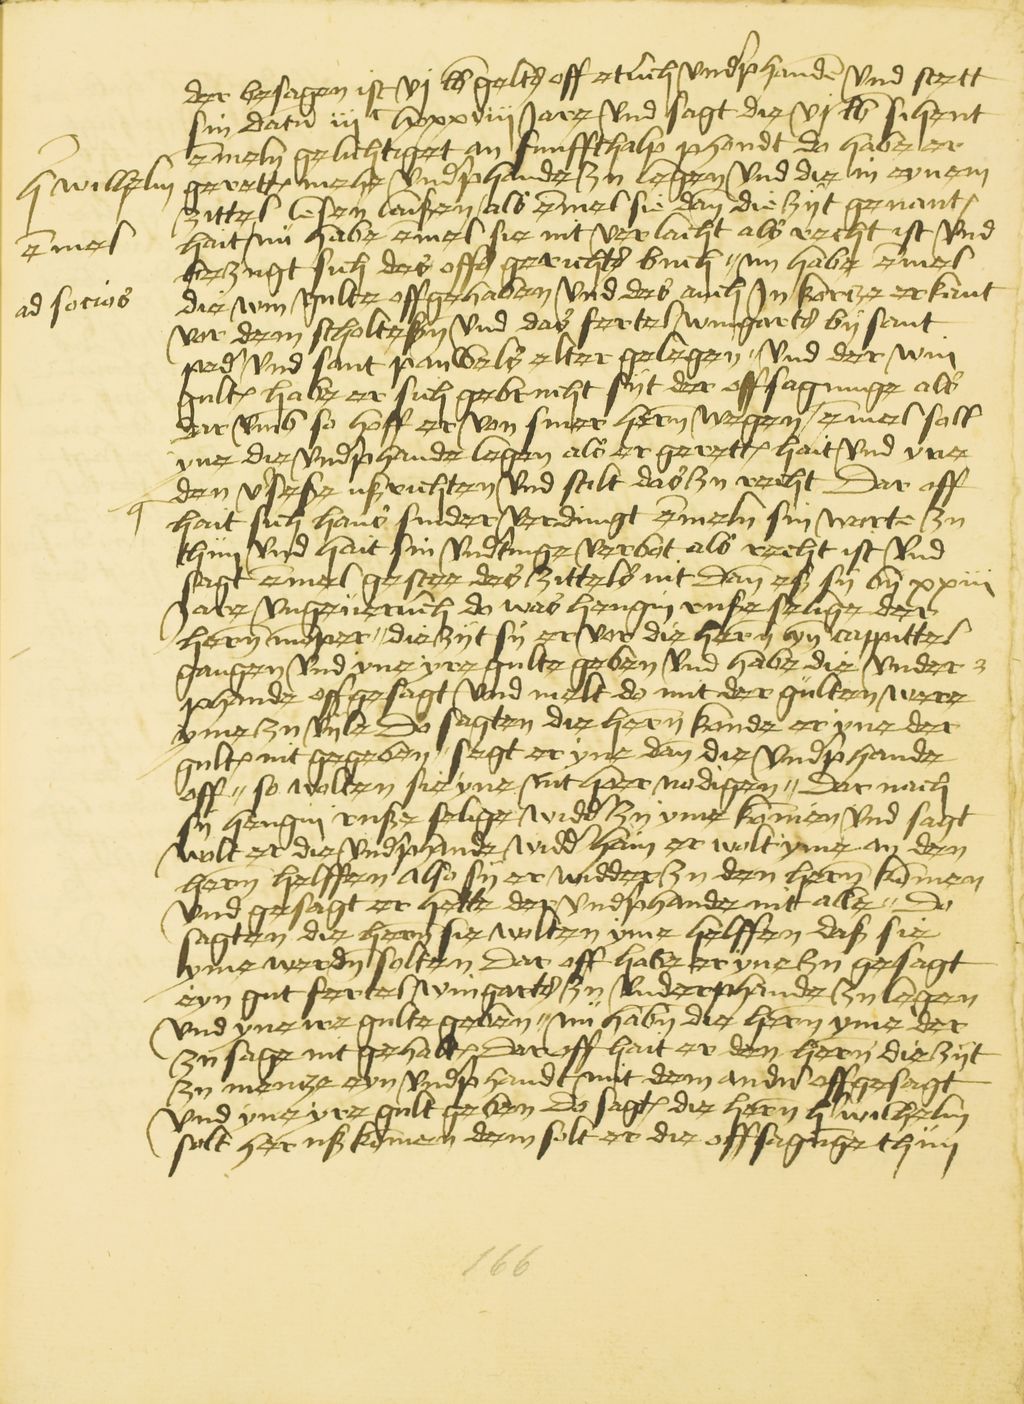 der besagen ist vj lb gelts off etlich undphanden und stett
sin datu iiijc lxxxiiij Jare und sagt die vj lb sihent
emeln gelichtiget an funffthalp phondt do habe er
h wilhelm
gerett mehe undphande zu legen und die in eynem
zittel lesen laißen / als emel sie dan die zijt genant
emel
hait nu habe emel sie nit verlacht als recht ist und
bezugt sich des offs gerichts buch // nu habe emel
ad socios
die win gulte offgehaben und des auch In korcze erkant
vor dem scholteßn und das fertel wingarts by sant
ped und sant pauwels elter gelegen // und der win
gulte habe er sich gebrucht sijt der offsagunge als
dar umb so hoff er von siner hern wegen / emel soll
yne die undphande legen als er gerett hait und yne
den v'seße ußrichten und stilt das zu recht Dar off
hait sich hans snider verdingt emeln sin worte zu
thun und hait sin undtinge verbot als recht ist und
sagt emel gestee des zittels nit Dan eß sij by xxiiij
Jare ungeuerlich do was hengin ruße selige der
hern momper // die zijt sij er vor die hern yn cappittel
gangen und yne yre gulte geben und habe die under
phande offgesagt und melt do mit der gulten were
yme zu vile Do sagten die hern konde er yne der
gulte nit gegeben / sagt er yne dan die undphande
off // so wolten sie yne nit hoer nodigen // Dar nach
sij hengin ruße selige widd zu yme komen und sagt
wolt er die undphande widd hain er wolt yme an den
hern helffen also sij er widder zu den hern komen
und gesagt er hette der undphande nit alle // Do
sagten die hern sie wolten yme helffen daß sie
yme werdn solten Dar off habe er yne zu gesagt
eyn gut fertel wingarts zu underphande zu legen
und yne ire gulte geben // nu habn die hern yme der
zu sage nit gehalt Dar off hait er den hern die zijt
zu mencze eyn undphandt mit dem andn offgesagt
und yne yre gult geben Do sagt die hern h wilhelm
solt her uß komen dem solt er die offsagunge thun
166